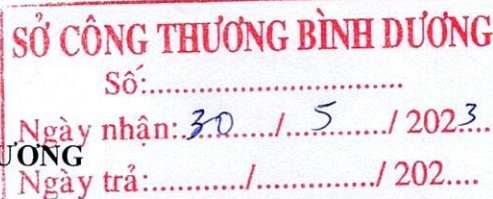 SỞ CÔNG THƯƠNG BÌNH DƯƠNG
Số:................................
Ngày nhận:.30....../....5....../ 202.3.
ƯƠNG
Ngày trả:............/............../ 202....